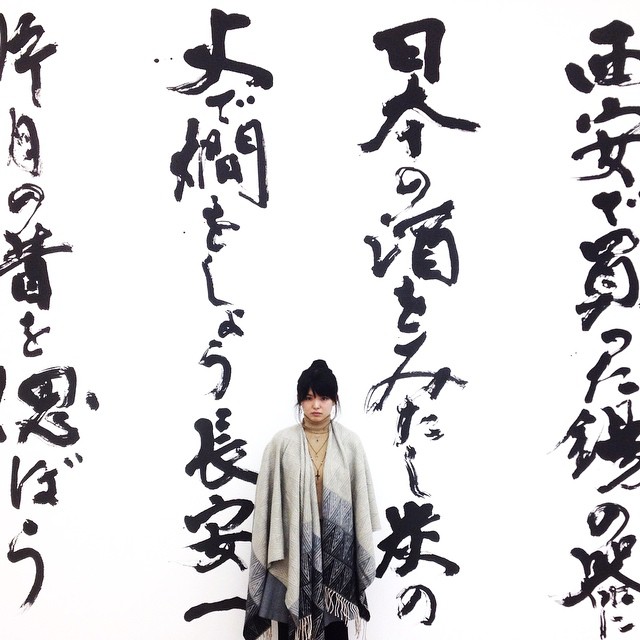 西安で買った錫の器に
日本の酒をみたし炭の
上で燗をしよう長安一
片月の昔を偲ぼう